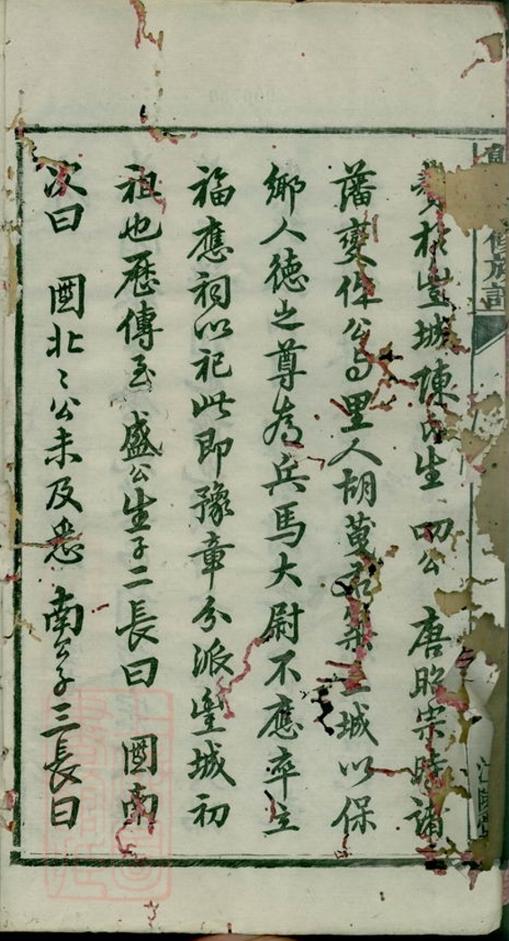 修族譜
江陵堂
於豈城陳氏生 四公 唐昭宗時諸
藩變作公与里人胡蒐君築豈城以保
鄉人德之尊為兵馬大尉不應卒立
福應祠以祀此即豫章分派豐城初
祖也歷傳至 盛公生子二長曰 國南
次曰 國北〻公未及悉 南公子三長曰